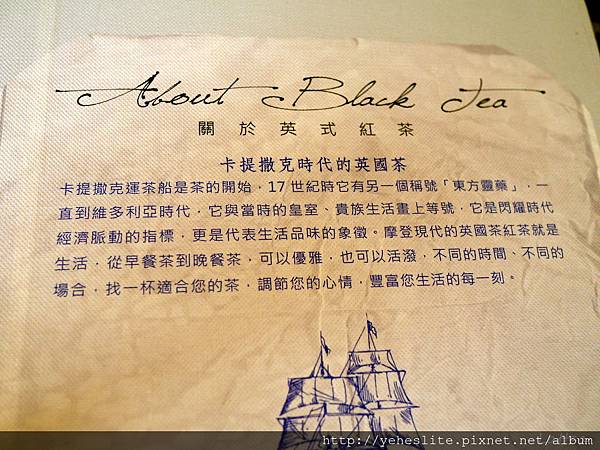 About Black Tea
關於英式紅茶
卡提撒克時代的英國茶
卡提撒克運茶船是茶的開始，17世紀時它有另一個稱號「東方靈藥」，一
直到維多利亞時代，它與當時的皇室、貴族生活畫上等號，它是閃耀時代
經濟脈動的指標，更是代表生活品味的象徵。摩登現代的英國茶紅茶就是
生活，從早餐茶到晚餐茶，可以優雅，也可以活潑，不同的時間、不同的
場合，找一杯適合您的茶，調節您的心情，豐富您生活的每一刻。
http://yeheslite.pixnet.net/album